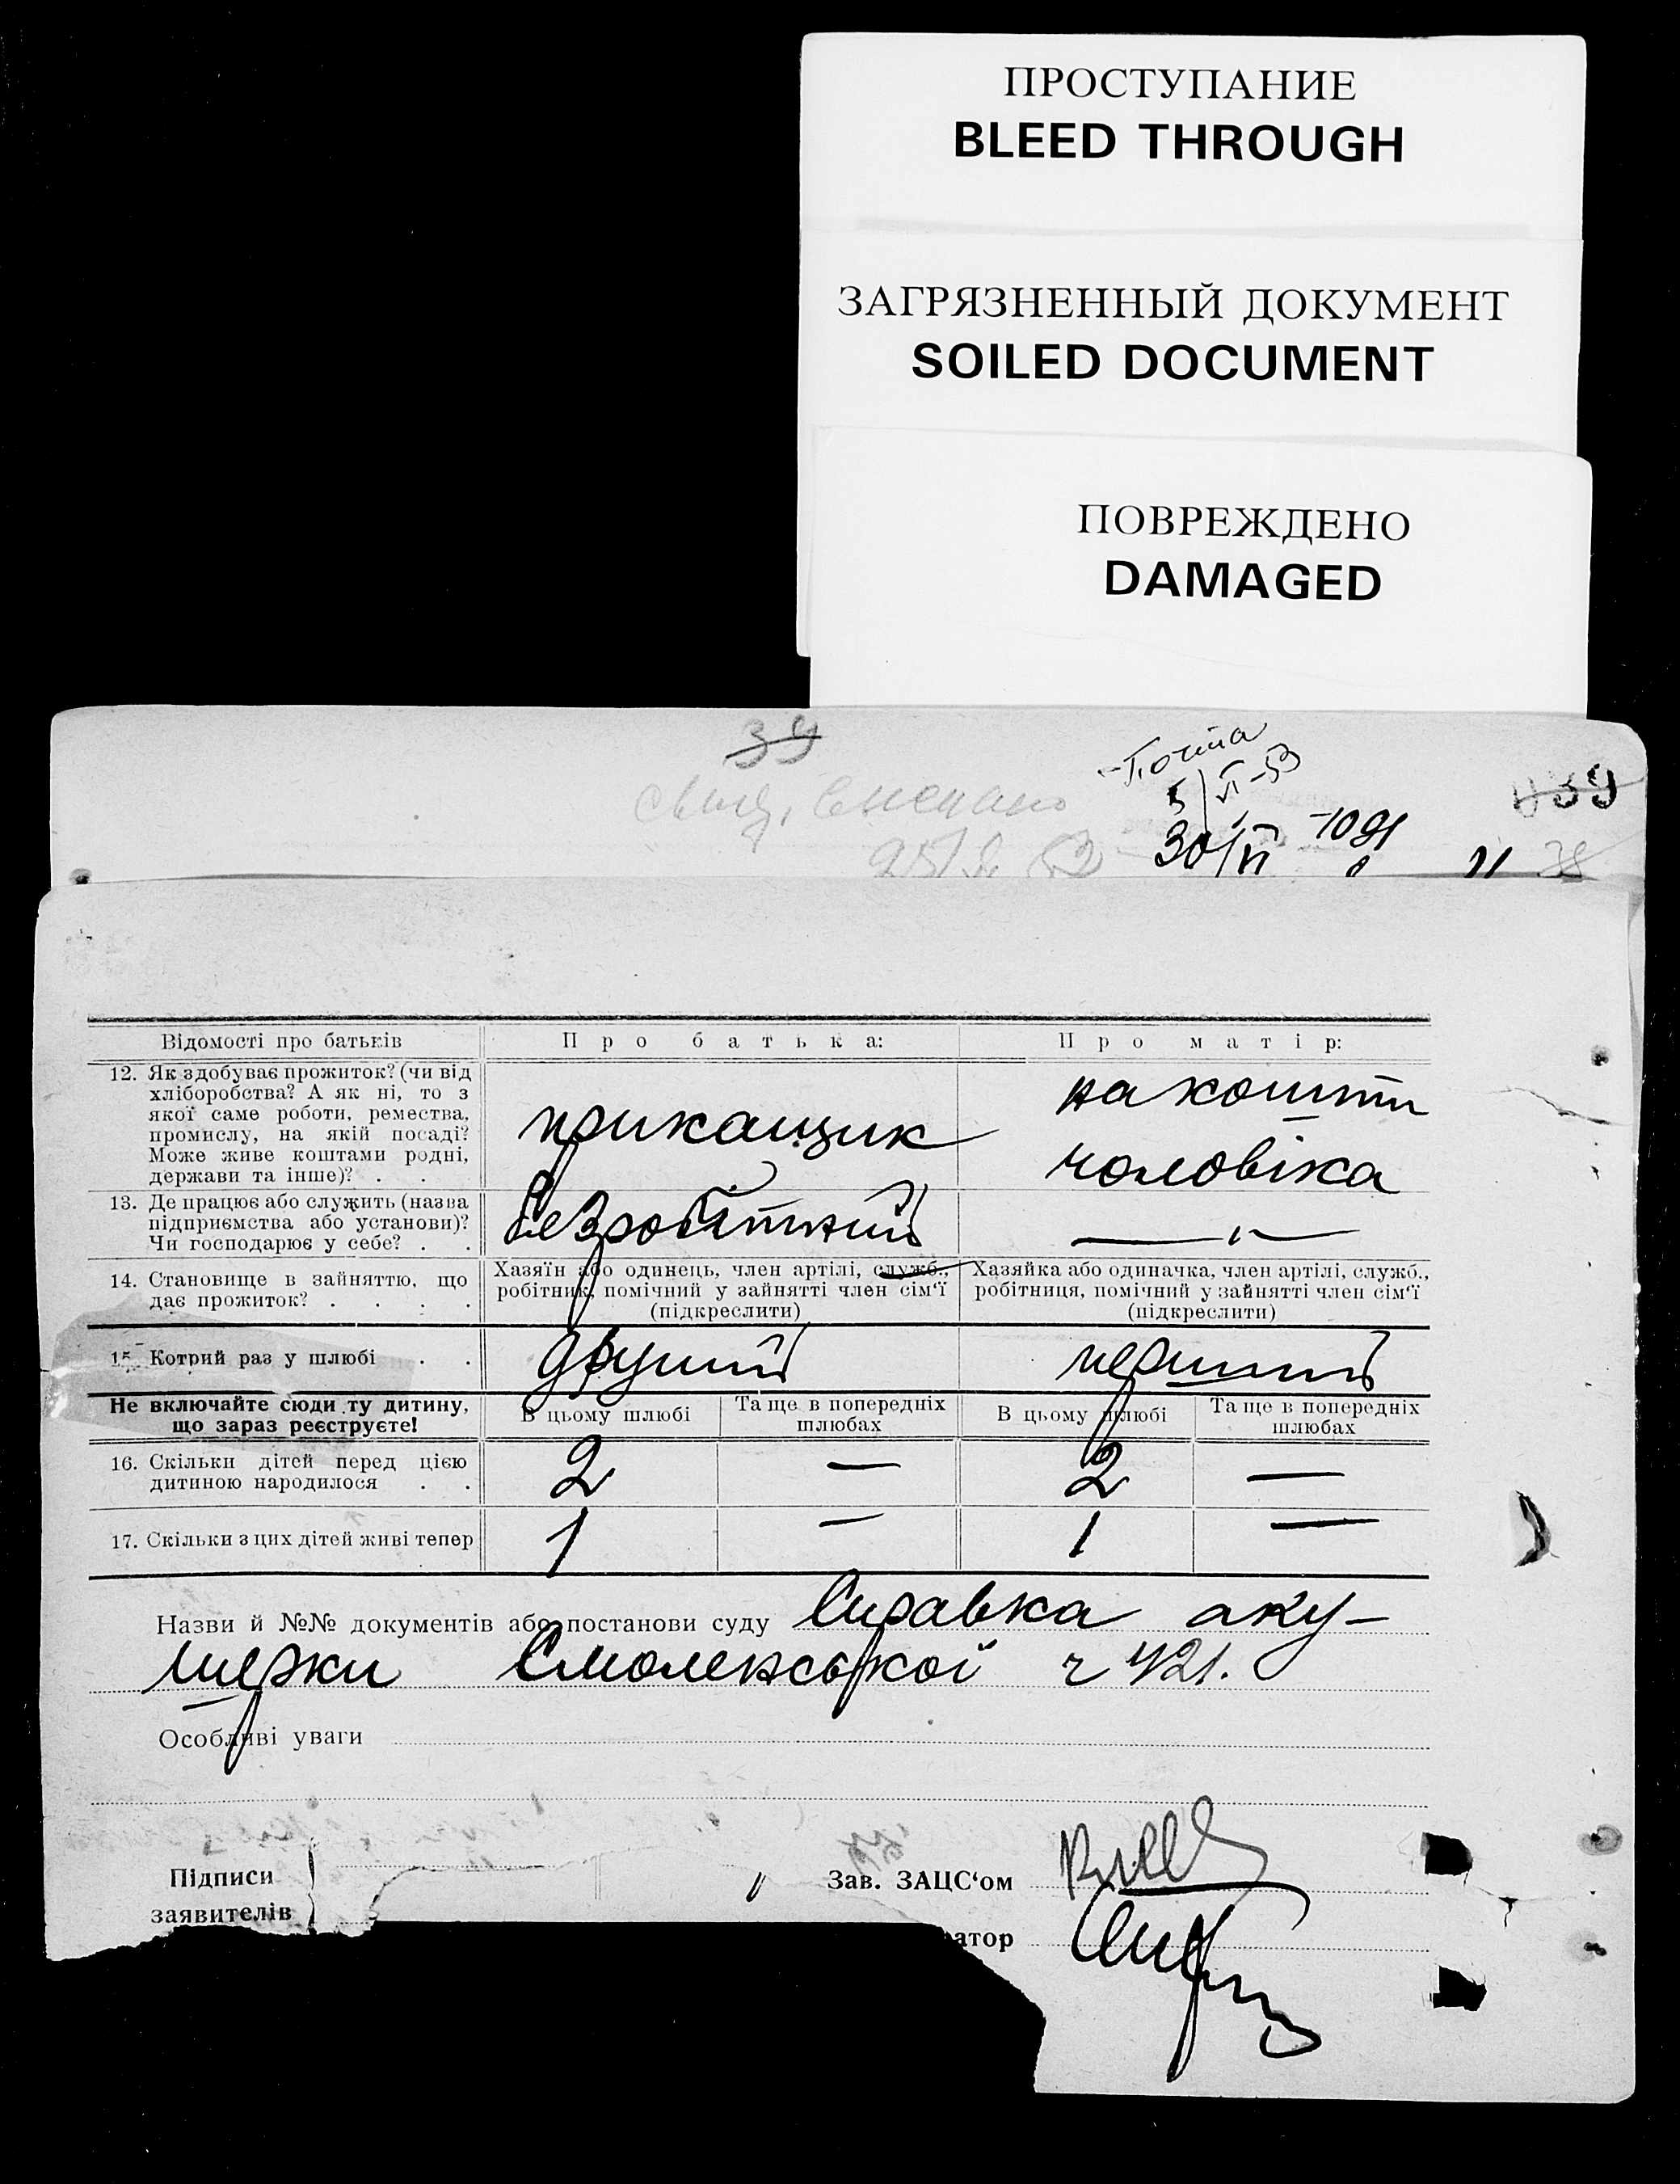 ПРОСТУПАНИЕ
BLEED THROUGH
ЗАГРЯЗНЕННЫЙ ДОКУМЕНТ
SOILED DOCUMENT
ПОВРЕЖДЕНО
DAMAGED
39
Почта
5/VI-53
39
30/VI
38
Відомості про батьків
Про батька:
Про матір:
12. Як здобуває прожиток? (чи від
хліборобства? А як ні, то з
якої саме роботи, ремества,
промислу, на якій посаді?
Може живе коштами родні,
держави та інше)? . .
прикащик
на кошти
чоловіка
13. Де працює або служить (назва
підприємства або установи)?
Чи господарює у себе? . .
безробітний
— „ —
14. Становище в зайняттю, що
дає прожиток? . . . .
Хазяїн або одинець, член артілі, служб.,
робітник, помічний у зайнятті член сім'ї
(підкреслити)
Хазяйка або одиначка, член артілі, служб.,
робітниця, помічний у зайнятті член сім'ї
(підкреслити)
15. Котрий раз у шлюбі . .
другий
перший
Не включайте сюди ту дитину,
що зараз реєструєте!
В цьому шлюбі
Та ще в попередніх
шлюбах
В цьому шлюбі
Та ще в попередніх
шлюбах
16. Скільки дітей перед цією
дитиною народилося . .
2 — 2 —
17. Скільки з цих дітей живі тепер
1 — 1 —
Назви й №№ документів або постанови суду Справка аку-
шерки Смоленської ч 421.
Особливі уваги
Підписи
заявителів
Зав. ЗАЦС'ом
атор